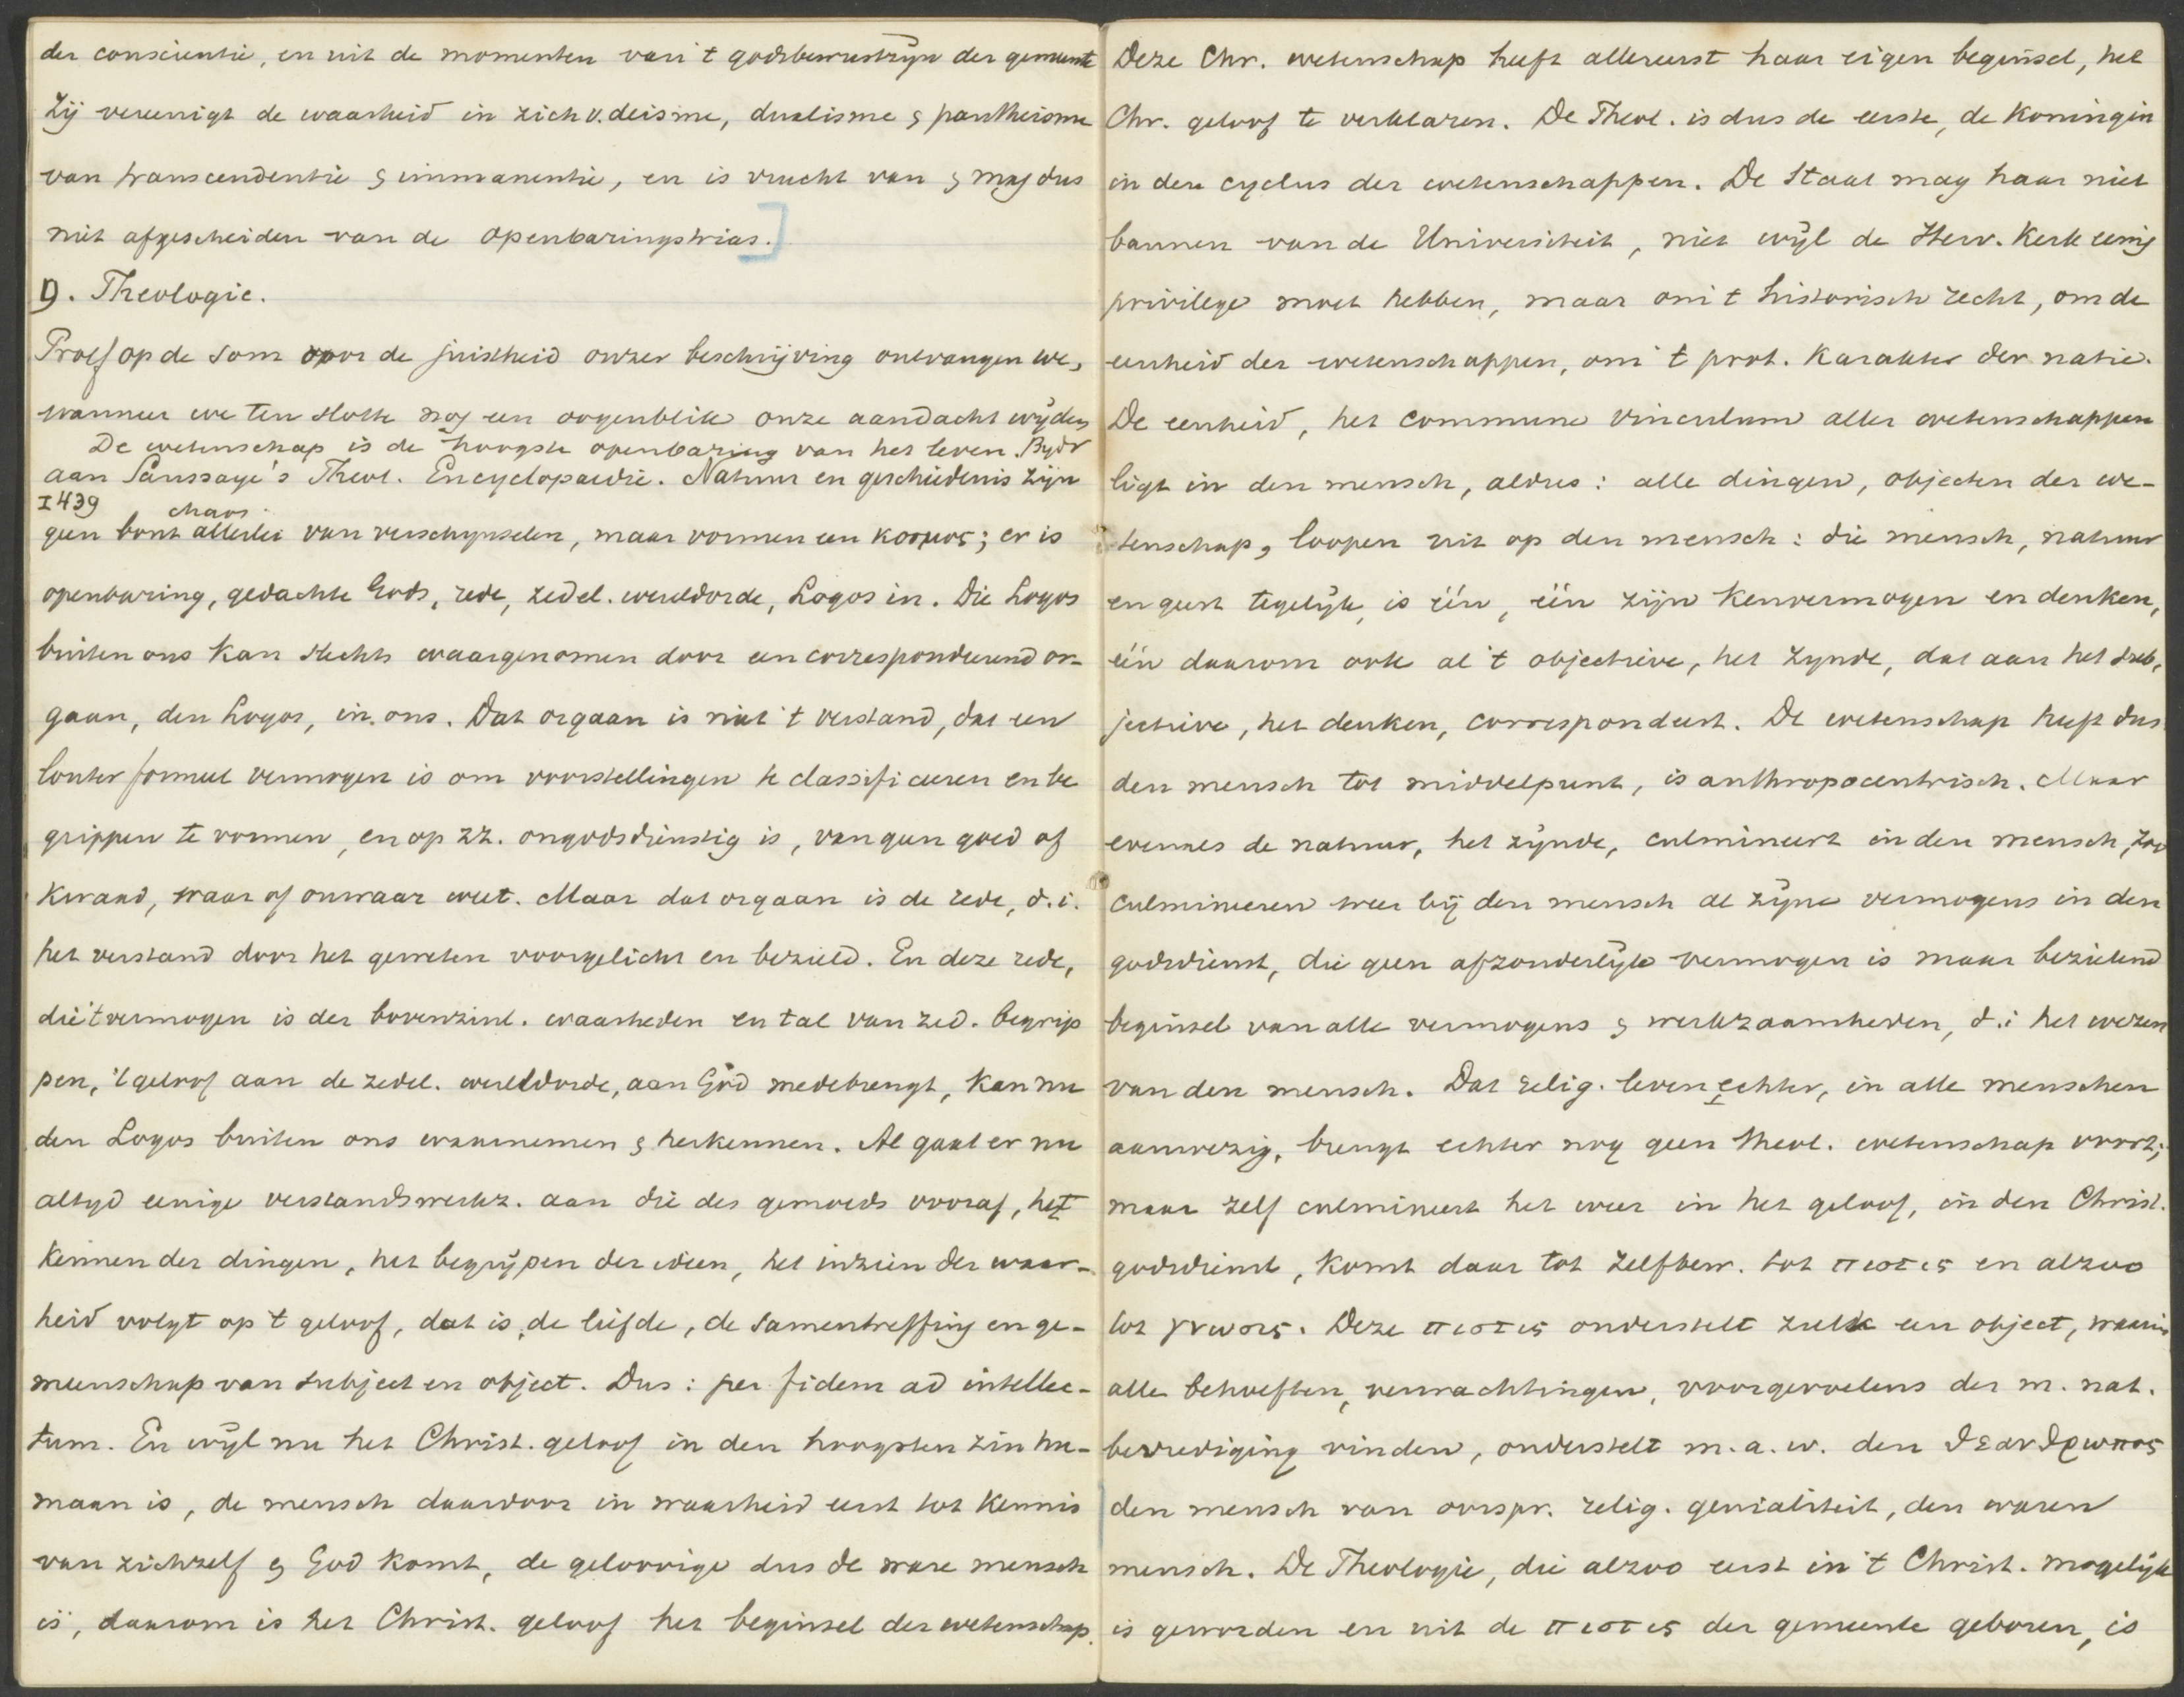 der conscientie, en uit de momenten van 't godsbewustzijn der gemeente
Zij vereenigt de waarheid in zich v. deisme, dualisme & pantheisme
van transcendentie & immanentie, en is vrucht van & mag dus
niet afgescheiden van de openbaringstrias.]
D. Theologie.
Proef op de som voor de juistheid onzer beschrijving ontvangen we,
wanneer we ten slotte nog een oogenblik onze aandacht wijden
De wetenschap is de hoogste openbaring van het leven. Bydr
aan Saussaye's Theol. Encyclopaedie. Natuur en geschiedenis zijn
I 439 chaos
geen bont allerlei van verschijnselen, maar vormen een κοσμος; er is
openbaring, gedachte Gods, rede, zedel. wereldorde, Logos in. Die Logos
buiten ons kan slechts waargenomen door een correspondeerend or-
gaan, den Logos, in ons. Dat orgaan is niet 't verstand, dat een
louter formeel vermogen is om voorstellingen te classificeeren en be
grippen te vormen, en op zz. ongodsdienstig is, van geen goed of
kwaad, waar of onwaar weet. Maar dat orgaan is de rede, d.i.
het verstand door het geweten voorgelicht en bezield. En deze rede,
die 't vermogen is der bovenzinl. waarheden en tal van zed. begrip
pen, 't geloof aan de zedel. wereldorde, aan God medebrengt, kan nu
den Logos buiten ons waarnemen & herkennen. Al gaat er nu
altyd eenige verstandswerkz. aan die des gemoeds vooraf, het
kennen der dingen, het begrijpen der ideen, het inzien der waar-
heid volgt op 't geloof, dat is, de liefde, de samentreffing en ge-
meenschap van subject en object. Dus: per fidem ad intellec-
tum. En wijl nu het Christ. geloof in den hoogsten zin hu-
maan is, de mensch daardoor in waarheid eerst tot kennis
van zichzelf & God komt, de geloovige dus de ware mensch
is, daarom is het Christ. geloof het beginsel der wetenschap.
Deze Chr. wetenschap heeft allereerst haar eigen beginsel, het
Chr. geloof te verklaren. De Theol. is dus de eerste, de Koningin
in den cyclus der wetenschappen. De Staat mag haar niet
bannen van de Universiteit, niet wijl de Herv. Kerk eenig
privilege moet hebben, maar om 't historisch recht, om de
eenheid der wetenschappen, om 't prot. karakter der natie.
De eenheid, het commune vinculum aller wetenschappen
ligt in den mensch, aldus: alle dingen, objecten der we-
tenschap, loopen uit op den mensch: die mensch, natuur
en geest tegelijk, is één, één zijn kenvermogen en denken,
één daarom ook al 't objectieve, het zynde, dat aan het sub-
jectieve, het denken, correspondeert. De wetenschap heeft dus
den mensch tot middelpunt, is anthropocentrisch. Maar
evenals de natuur, het zijnde, culmineert in den mensch, zoo
culmineren weer bij den mensch al zijne vermogens in den
godsdienst, die geen afzonderlijk vermogen is maar bezielend
beginsel van alle vermogens & werkzaamheden, d.i het wezen
van den mensch. Dat relig. leven echter, in alle menschen
aanwezig, brengt echter nog geen theol. wetenschap voort;
maar zelf culmineert het weer in het geloof, in den Christ.
godsdienst, komt daar tot zelfbew. tot πιστις en alzoo
tot γνωσις. Deze πιστις onderstelt zulk een object, waarin
alle behoeften, verwachtingen, voorgevoelens der m. nat.
bevrediging vinden, onderstelt m.a.w. den θεανθρωπος
den mensch van oorspr. relig. genialiteit, den waren
mensch. De Theologie, die alzoo eerst in 't Christ. mogelijk
is geworden en uit de πιστις der gemeente geboren, is